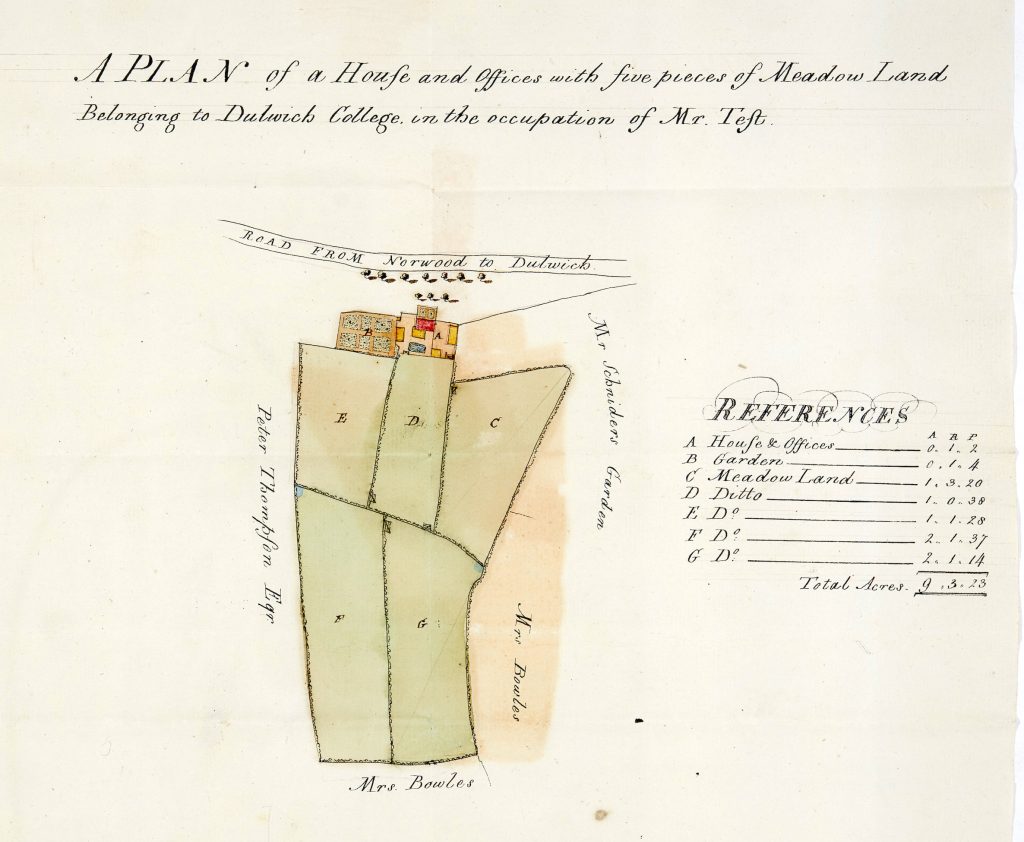 A PLAN of a Houſe and Offices with five pieces of Meadow Land
Belonging to Dulwich College, in the occupation of Mr. Teſt.
ROAD FROM Norwood to Dulwich.
B
A
E
D
C
F
G
Peter Thompſon Eqr
Mr Schniders Garden
Mrs Bowles
Mrs. Bowles
REFERENCES
A R P
A House & Offices 0. 1. 2
B Garden 0. 1. 4
C Meadow Land 1. 3. 20
D Ditto 1. 0. 38
E Do. 1. 1. 28
F Do. 2. 1. 37
G Do. 2. 1. 14
Total Acres. 9. 3. 23